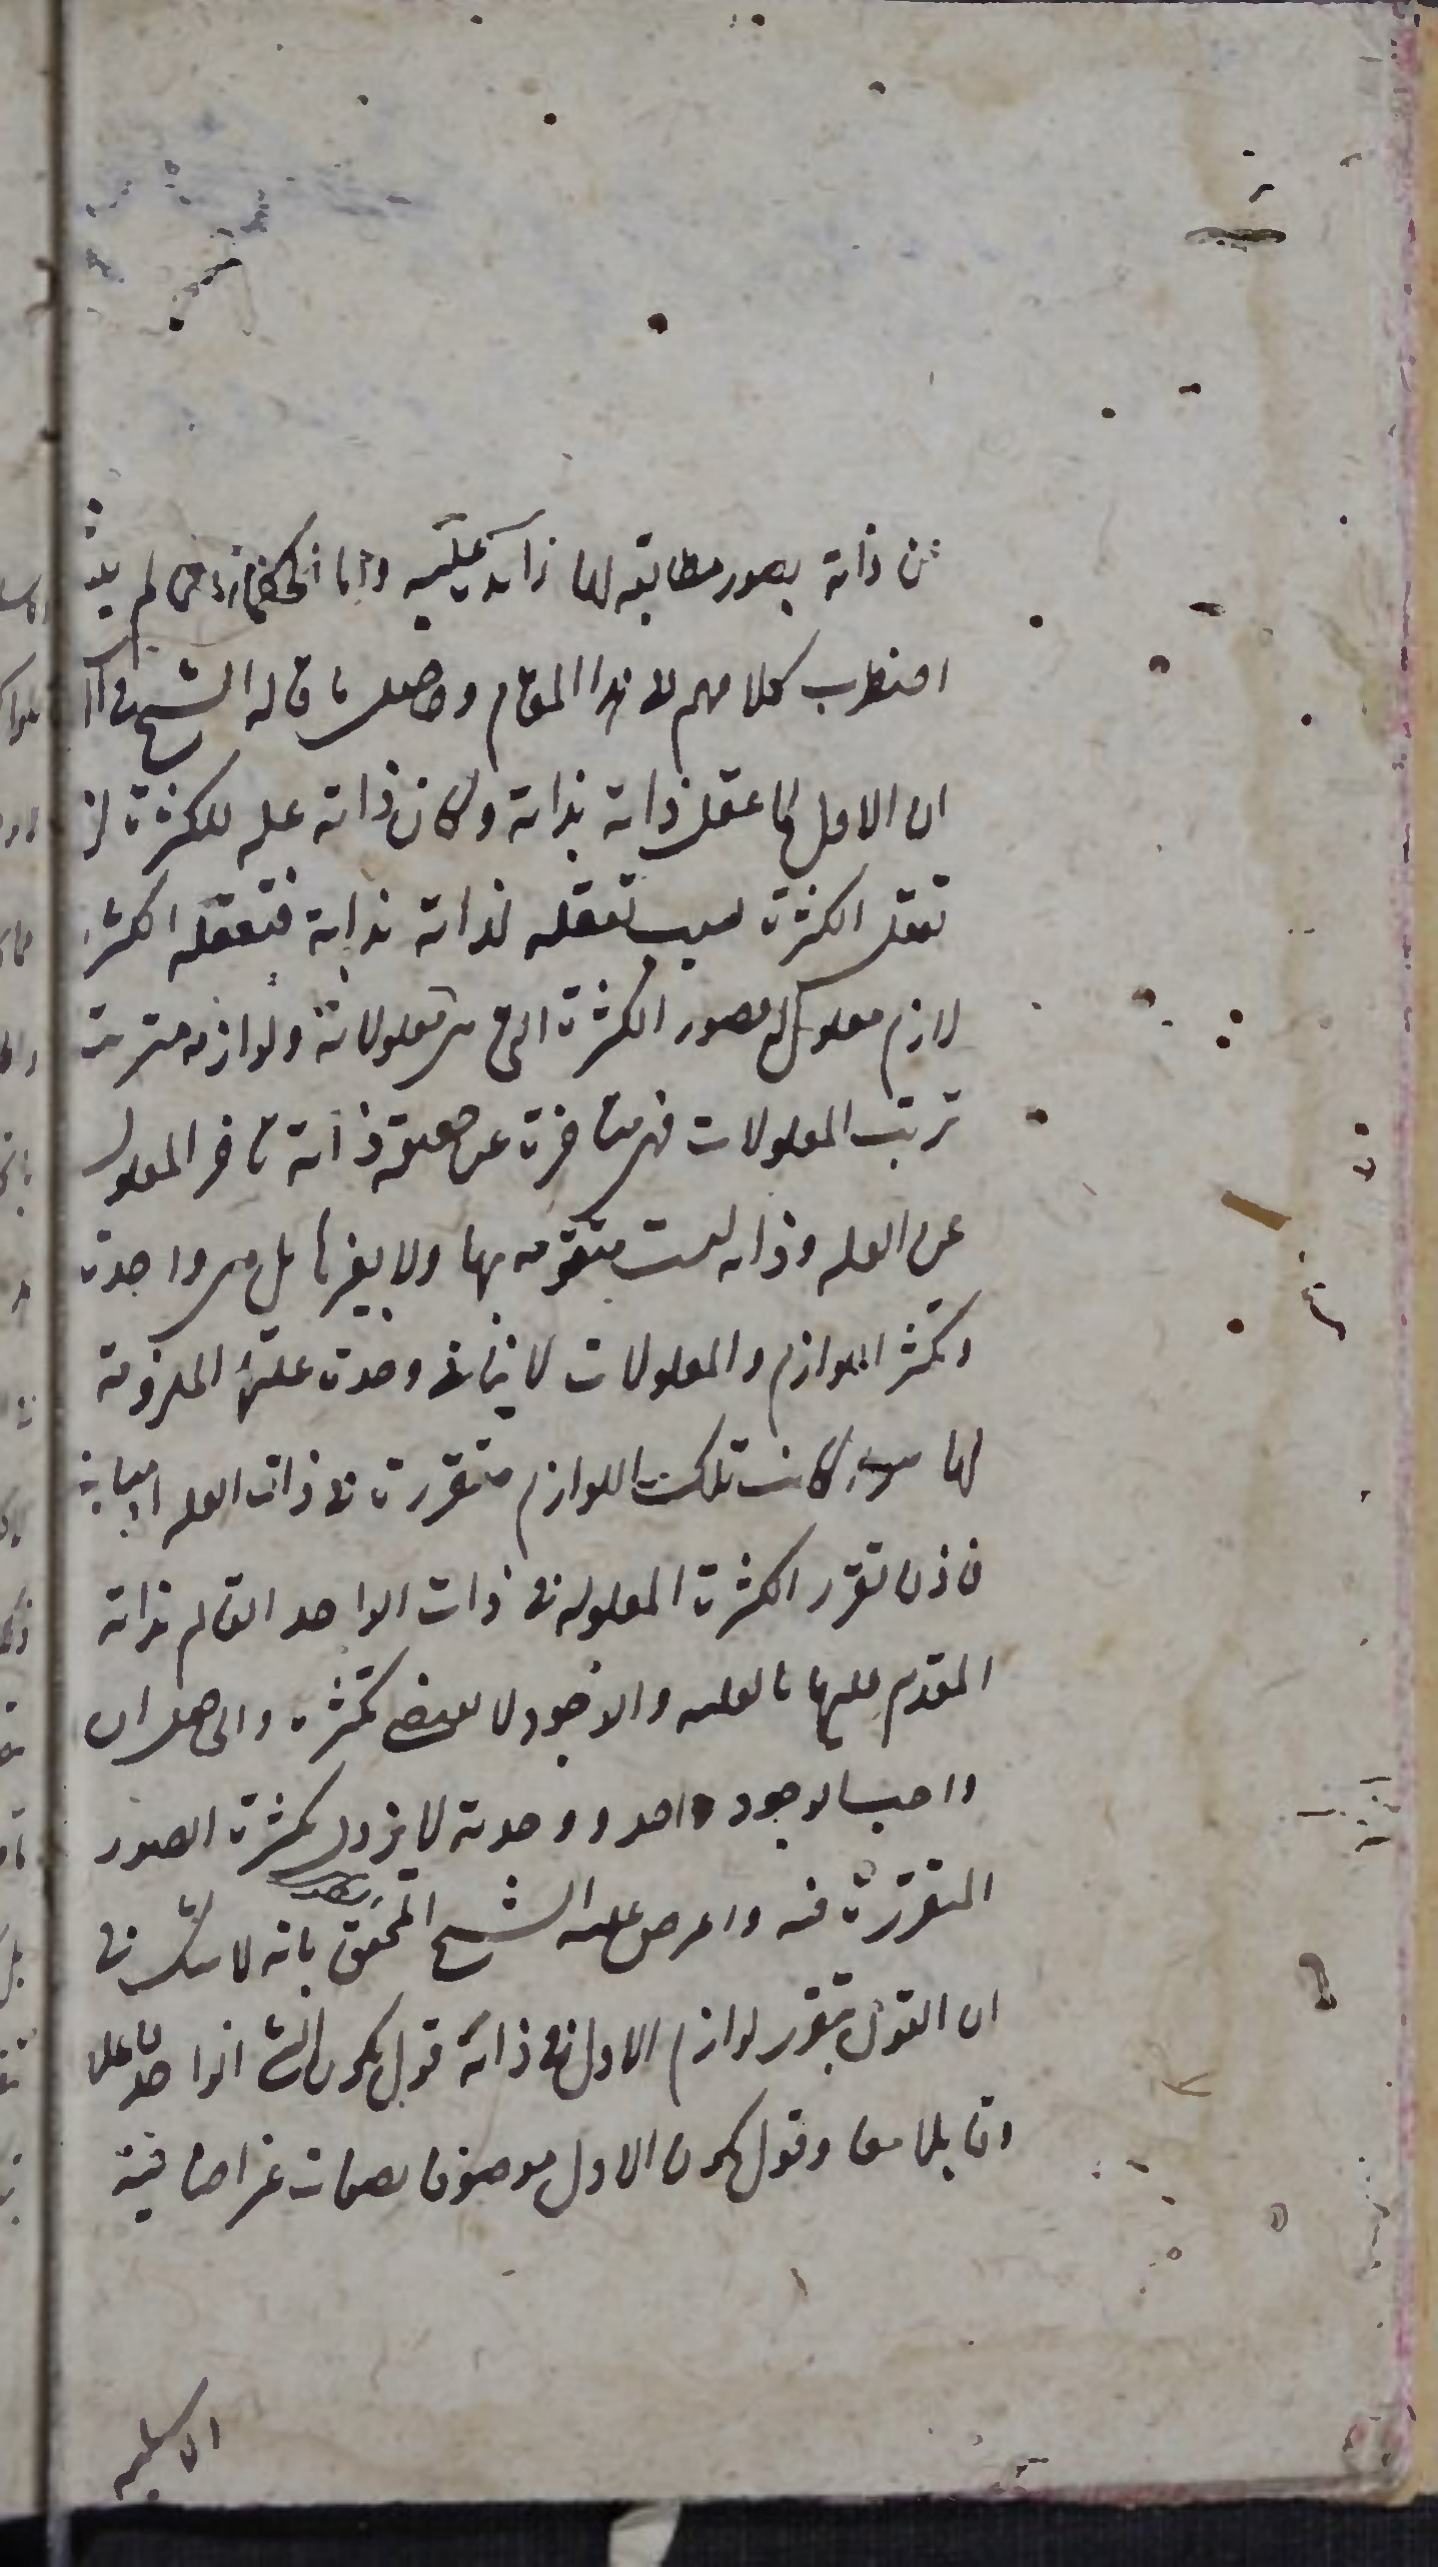 عن ذاته بصور مطابقه لها زائده عليه واما الحكماء لم
اضطرب كلامهم فى هذا المقام وحاصل ما قاله الشيخ فى
ان الاول لما عقل ذاته بذاته وكان ذاته عله للكثرة لز
تعقل الكثرة بسبب تعقله لذاته بذاته فتعقله الكثر
لازم معلول له فصور الكثرة التى هى معلولاته ولوازمه مترتبة
ترتب المعلولات فهى متاخرة عن حقيقه ذاته تاخر المعلول
عن العله وذاته ليست متقومه بها ولا بغيرها بل هى واحدة
وتكثر اللوازم والمعلولات لا ينافى وحدة علتها الملزومة
لها سواء كانت تلك اللوازم متقررة فى ذات العله او مباينة
فاذن تقرر الكثرة المعلوله فى ذات الواحد القائم بذاته
المقدم عليها بالعليه والوجود لا يقتضى تكثره والحاصل ان
واجب الوجود واحد ووحدته لا يزول بكثرة الصور
المتقررة فيه واعترض عليه الشيخ المحقق بانه لا شك فى
ان القول بتقرر لوازم الاول فى ذاته قول بكون الشئ الواحد فاعلا
وقابلا معا وقول بكون الاول موصوفا بصفات غير اضافية